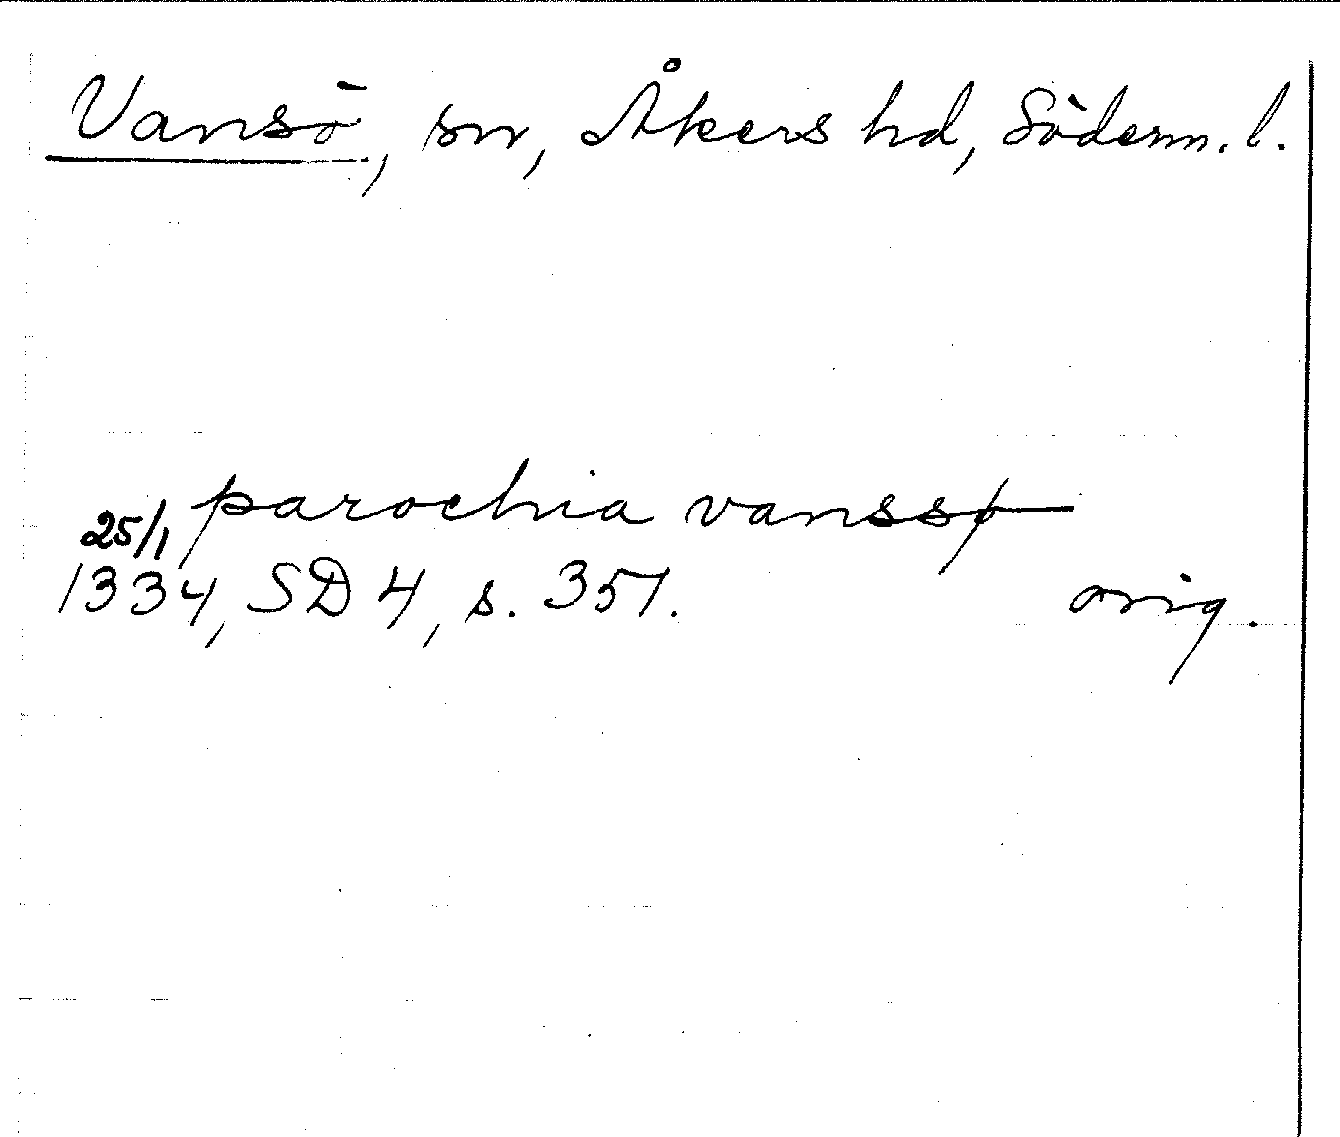 Vansö, sn, Åkers hd, Söderm. l.
parochia vanssø
25/1
1334, SD 4, s. 351.
orig.